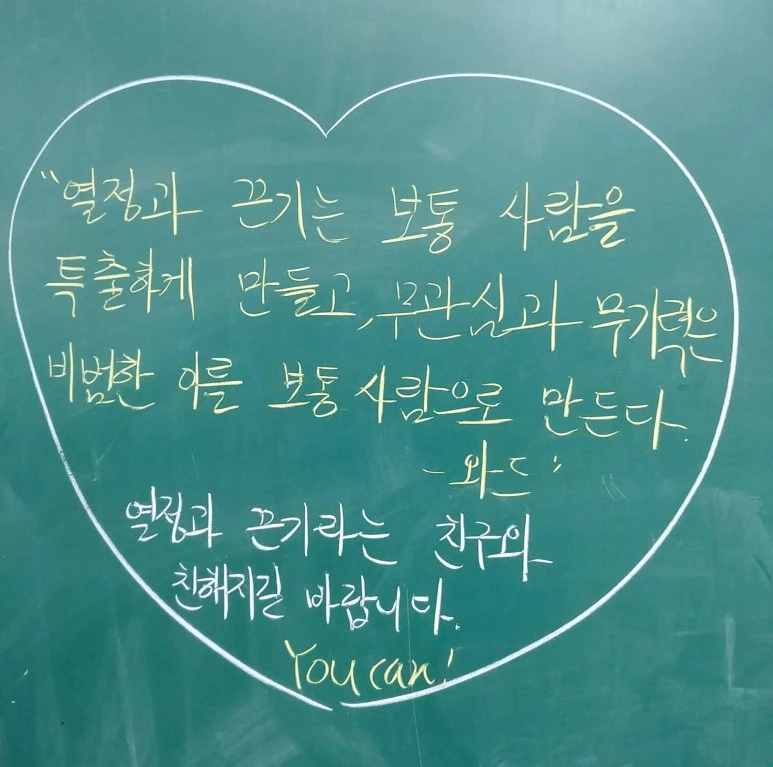 "열정과 끈기는 보통 사람을
특출하게 만들고, 무관심과 무기력은
비범한 이를 보통 사람으로 만든다.
- 와드 "
열정과 끈기라는 친구와
친해지길 바랍니다.
You can!